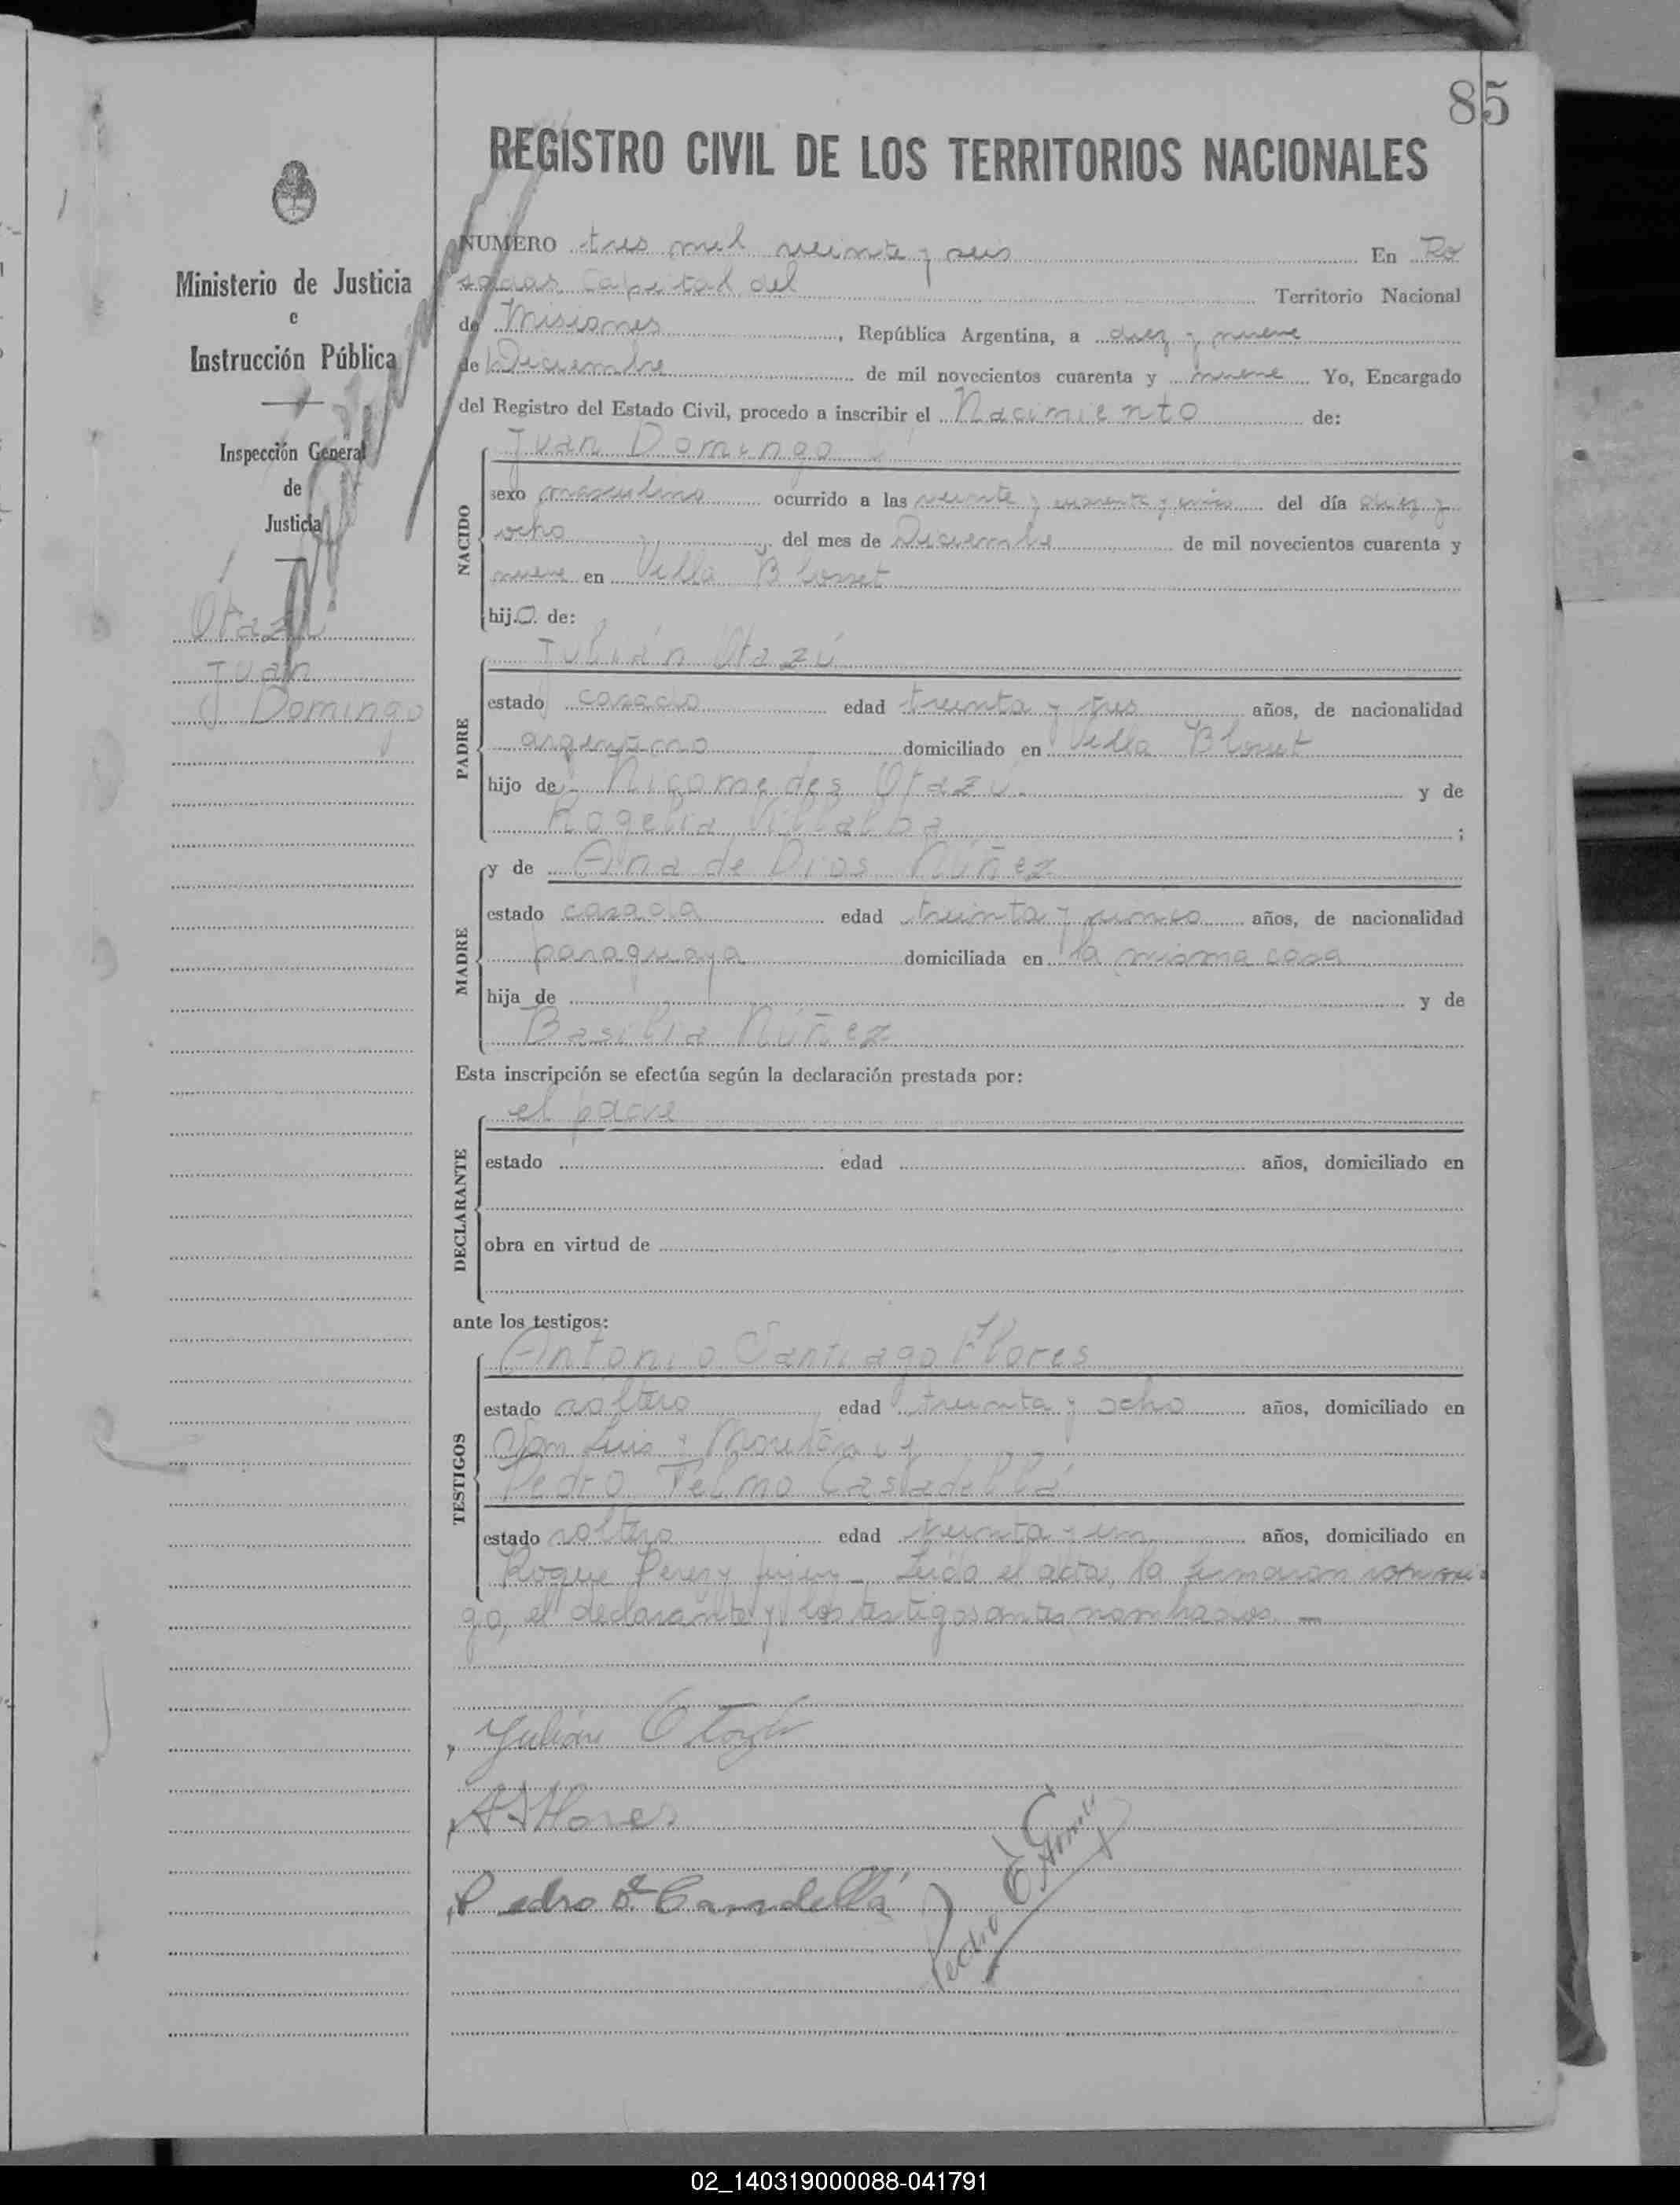 85
REGISTRO CIVIL DE LOS TERRITORIOS NACIONALES
Ministerio de Justicia
e
Instrucción Pública
Inspección General
de
Justicia
Otazú
Juan
Domingo
NUMERO tres mil veinte y seis En Po
sadas Capital del Territorio Nacional
de Misiones, República Argentina, a diez y nueve
de Diciembre de mil novecientos cuarenta y nueve Yo, Encargado
del Registro del Estado Civil, procedo a inscribir el Nacimiento de:
NACIDO
Juan Domingo
sexo masculino ocurrido a las veinte y cuarenta y cinco del día diez y
ocho del mes de Diciembre de mil novecientos cuarenta y
nueve en Villa Blosset
hijo de:
PADRE
Julián Otazú
estado casado edad treinta y tres años, de nacionalidad
argentino domiciliado en Villa Blosset
hijo de Nicomedes Otazú y de
Rogelia Villalba ;
MADRE
y de Ana de Dios Núñez
estado casada edad treinta y cinco años, de nacionalidad
paraguaya domiciliada en la misma casa
hija de y de
Basilia Núñez
Esta inscripción se efectúa según la declaración prestada por:
DECLARANTE
el padre
estado edad años, domiciliado en
obra en virtud de
ante los testigos:
TESTIGOS
Antonio Santiago Flores
estado soltero edad treinta y ocho años, domiciliado en
San Luis y
Pedro Telmo Casadellá
estado soltero edad treinta y un años, domiciliado en
Roque Perez y Jujuy - Leída el acta, la firmaron conmi
go, el declarante y los testigos antes nombrados. -
Julián Otazú
A S Flores
Pedro T. Casadellá
Pedro E.
02_140319000088-041791